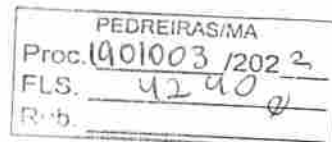 PEDREIRAS/MA
Proc. 1901003 /2022
FLS. 4240
Rub.